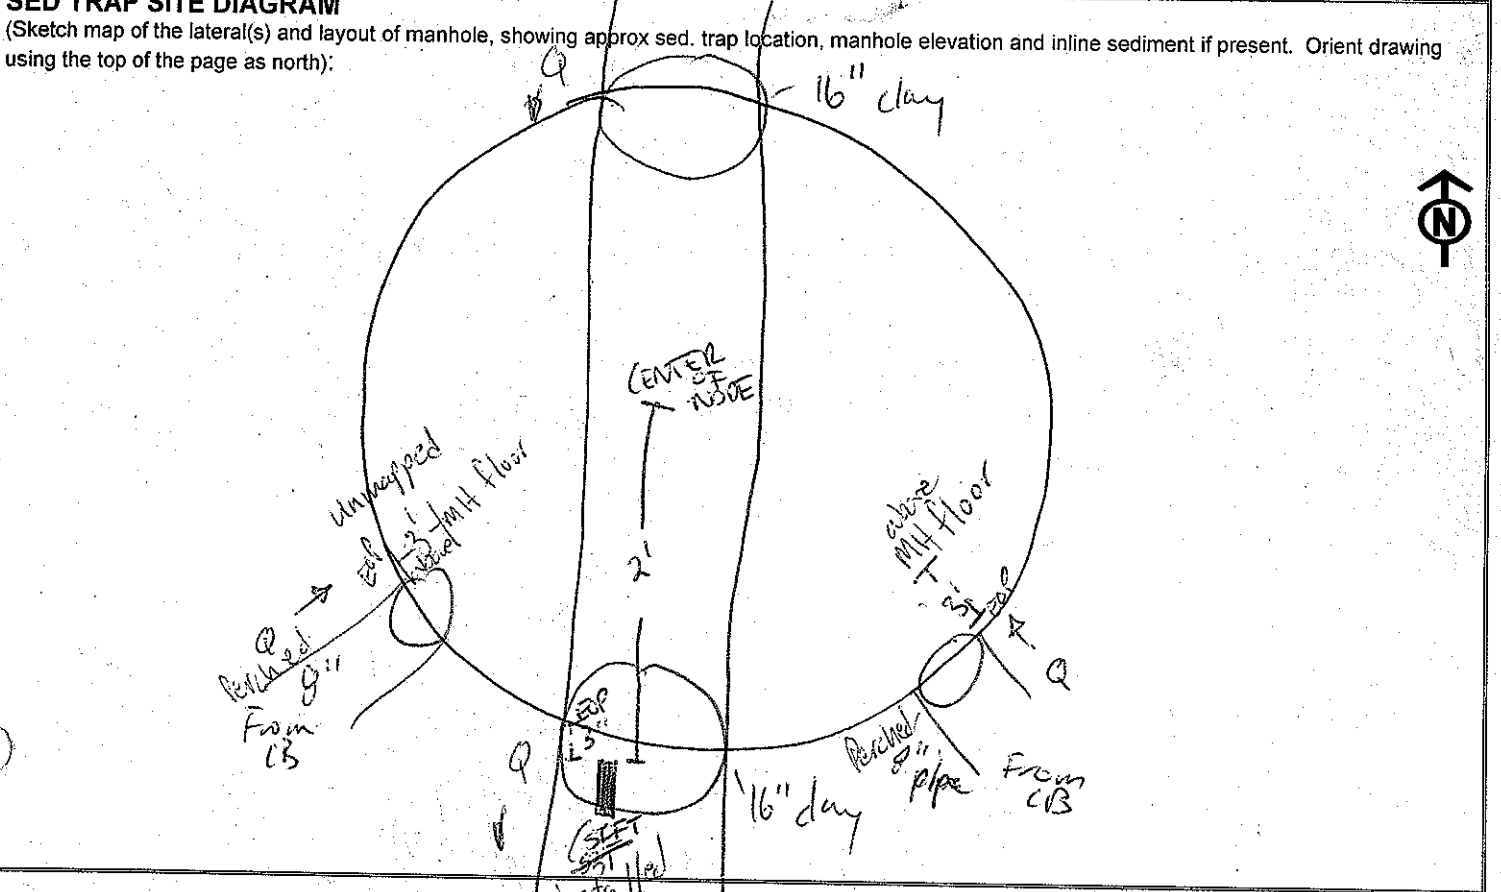 SED TRAP SITE DIAGRAM
(Sketch map of the lateral(s) and layout of manhole, showing approx sed. trap location, manhole elevation and inline sediment if present. Orient drawing
using the top of the page as north):
Q
16" clay
N
CENTER
OF
NODE
Unmapped
3'
MH floor
EOP
above
MH floor
3'
EOP
2'
Q
Perched
8"
From
CB
Q
EOP
3"
Q
Perched
8"
pipe
From
CB
16" clay